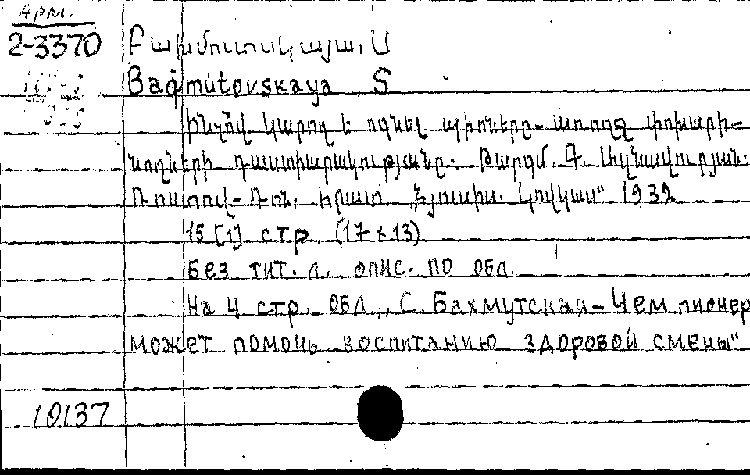 Арм.
2-3370
Բախմուտսկայա, Ս
Baqmutovskaya S
Ինչով կարող է օգնել պիոները առողջ փոխարի-
նողների դաստիարակությանը. Թարգմ. Գ.
Ռոստով-Դոն, հրատ. 1932
15 [1] стр (17x13)
Без тит. л. опис. по обл
На 4 стр. обл. „С. Бахмутская-Чем пионер
может помочь воспитанию здоровой смены"
10137